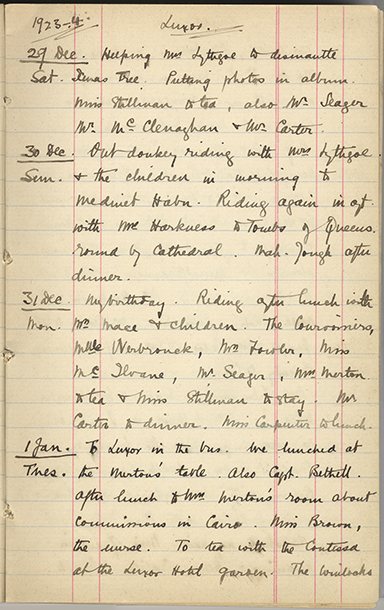 1923-4. Luxor.
29 Dec. Helping Mrs Lythgoe to dismantle
Sat. Xmas tree. Putting photos in album.
Miss Stillman to tea, also Mr. Seager
Mr. McClenaghan & Mr. Carter.
30 Dec. Out donkey riding with Mrs Lythgoe
Sun. & the children in morning to
Medinet Habu. Riding again in aft.
with Mr. Harkness to Tombs of Queens.
round by Cathedral. Mah-Jongh after
dinner.
31 Dec. My birthday. Riding after lunch with
Mon. Mrs Mace & children. The
Mlle Werbrouck, Mrs Fowler, Miss
Mc Ilvane, Mr. Seager, Mrs Merton
to tea & Miss Stillman to stay. Mr
Carter to dinner. Miss Carpenter to lunch.
1 Jan. To Luxor in the bus. We lunched at
Tues. the Merton's table. Also Capt. Bethell.
After lunch to Mrs Merton's room about
commissions in Cairo. Miss Brown,
the nurse. To tea with the Contessa
at the Luxor Hotel garden. The Winlocks